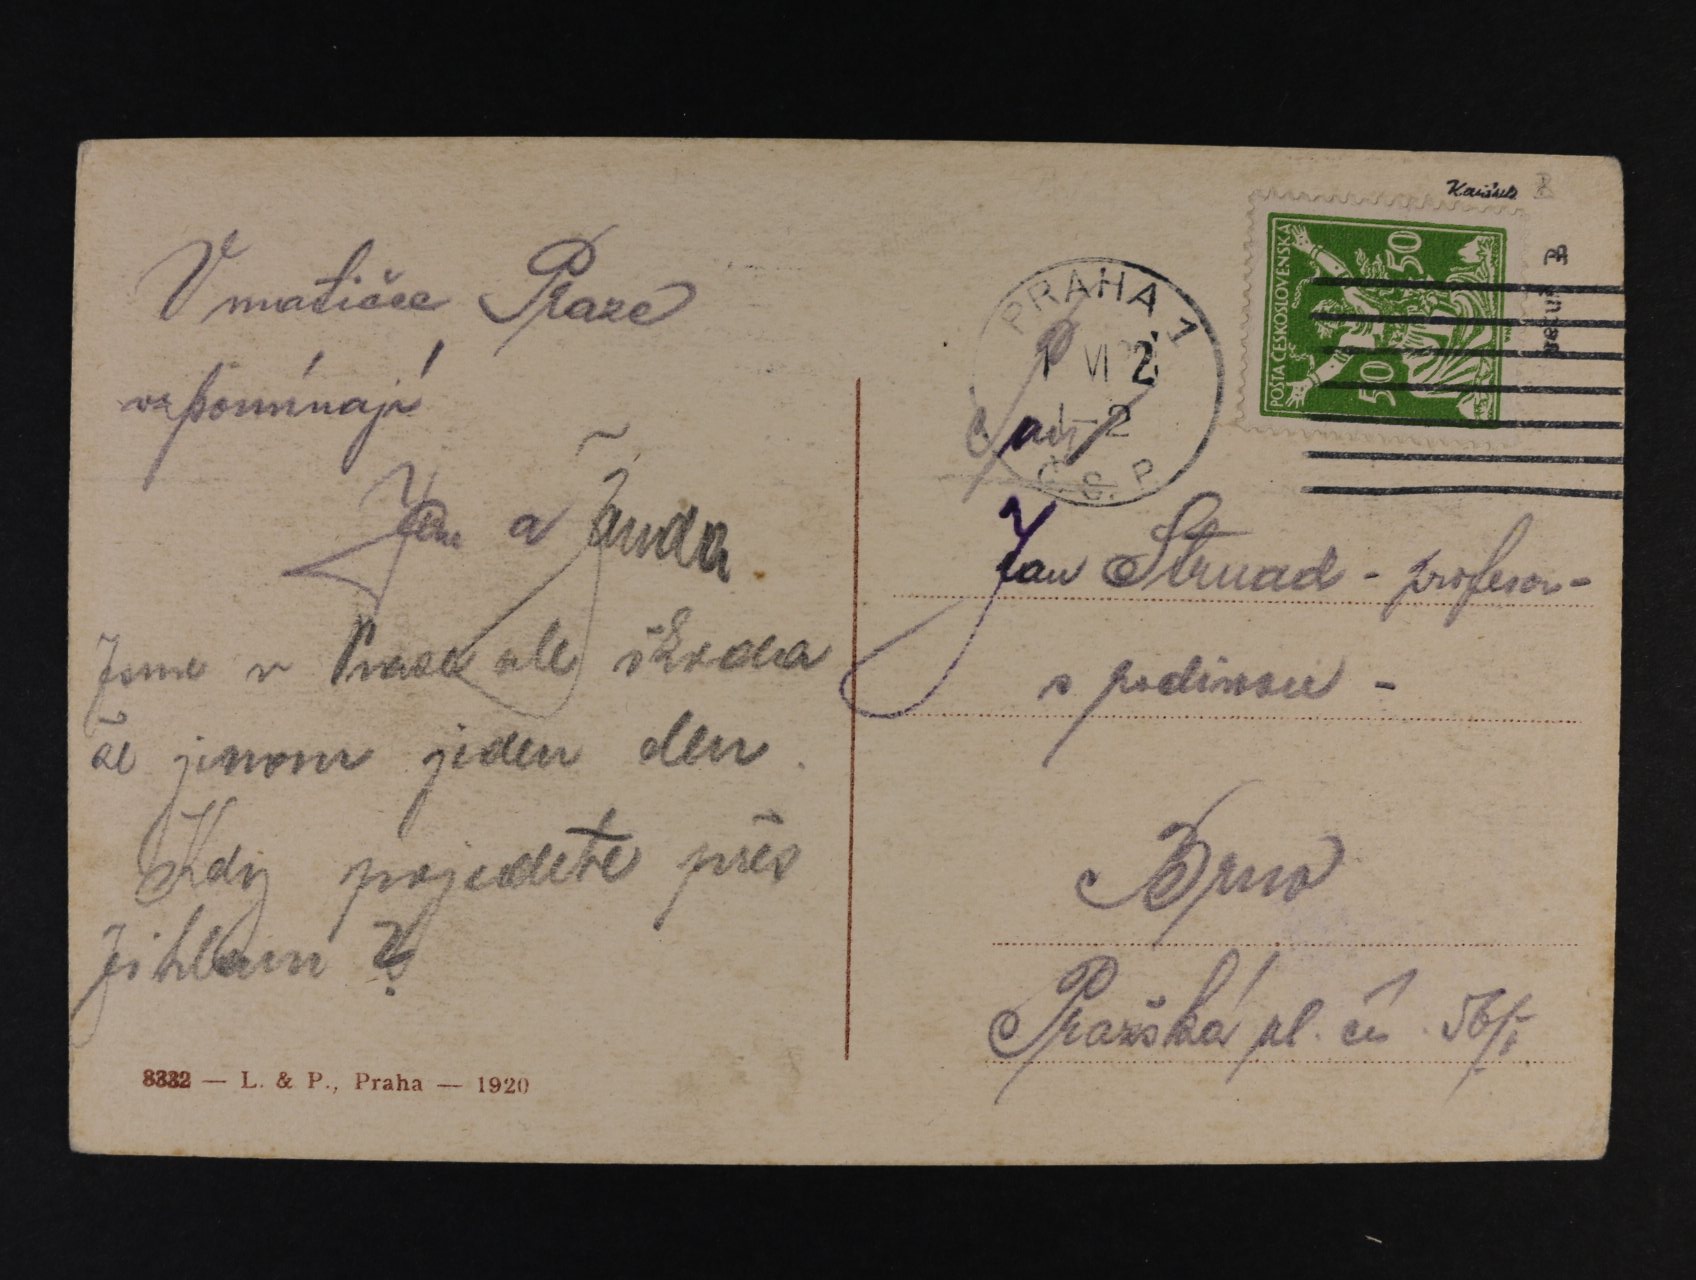 V matičce Praze
vzpomínají
Jan a Jarda
Jsme v Praze ale škoda
že jenom jeden den.
Kdy pojedete přes
Jihlavu?
8332 — L. & P., Praha — 1920
PRAHA 1
1 VI 2
Č. S. P.
POŠTA ČESKOSLOVENSKÁ
50 50
P.
Jan Strnad - profesor -
s rodinou -
Brno
Pražská pl. čís. 56/I